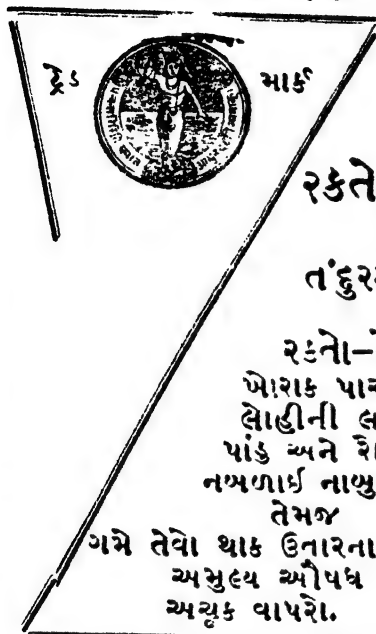 ટ્રેડ માર્ક
રક્તો
તંદુર
રક્તો–
ખોરાક પાચ
લોહીની
પાંડુ અને
નબળાઈ નાબુ
તેમજ
ગમે તેવો થાક ઉતારના
અમુલ્ય ઔષધ
અચૂક વાપરો.